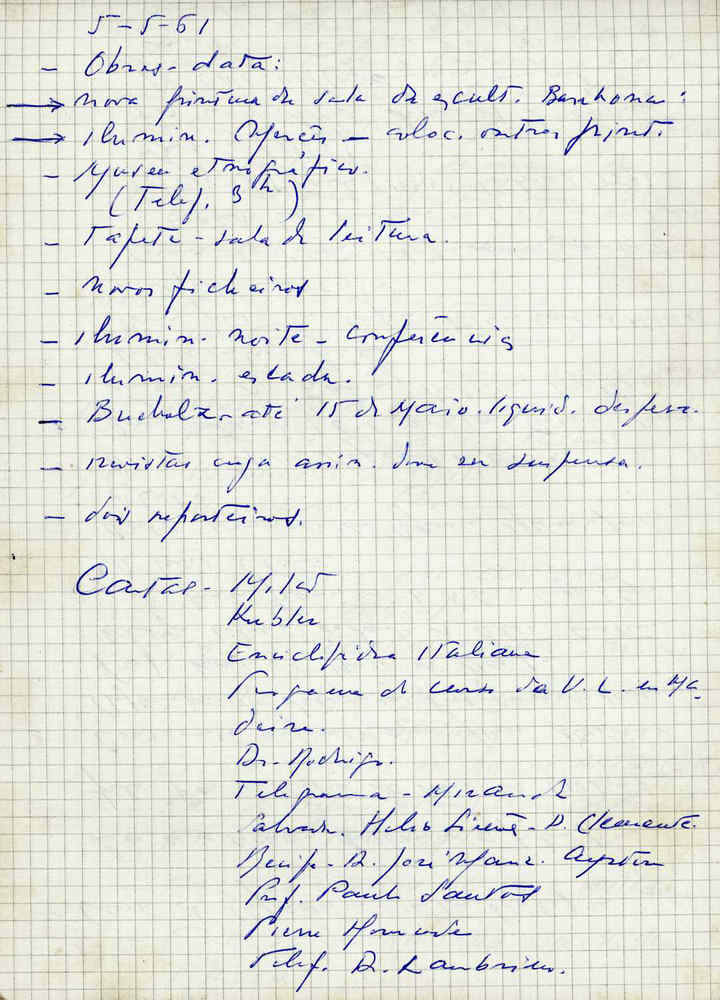 5-5-61
- Obras - data:
→ nova pintura da sala de escult. Barchona:
→ ilumin. Mercês - coloc. outros print.
- Museu etnográfico.
(Telef. 3h)
- Tapete - sala de leitura.
- novos ficheiros
- ilumin. noite - conferências
- ilumin. escada.
- Bucholz - até 15 de Maio. liquid. despesa.
- revistas cuja assin. deve ser suspensa.
- dois reposteiros.
Cartas -
Kubler
Enciclopédia Italiana
Programa do curso da V. L. em Ma-
deira.
Dr. Rodrigo.
Telegrama - Miranda
Salvador. Helio Simões - D. Clemente.
Recife - R. José Ayrton
Prof. Paulo Santos
Pierre
Telef. D.